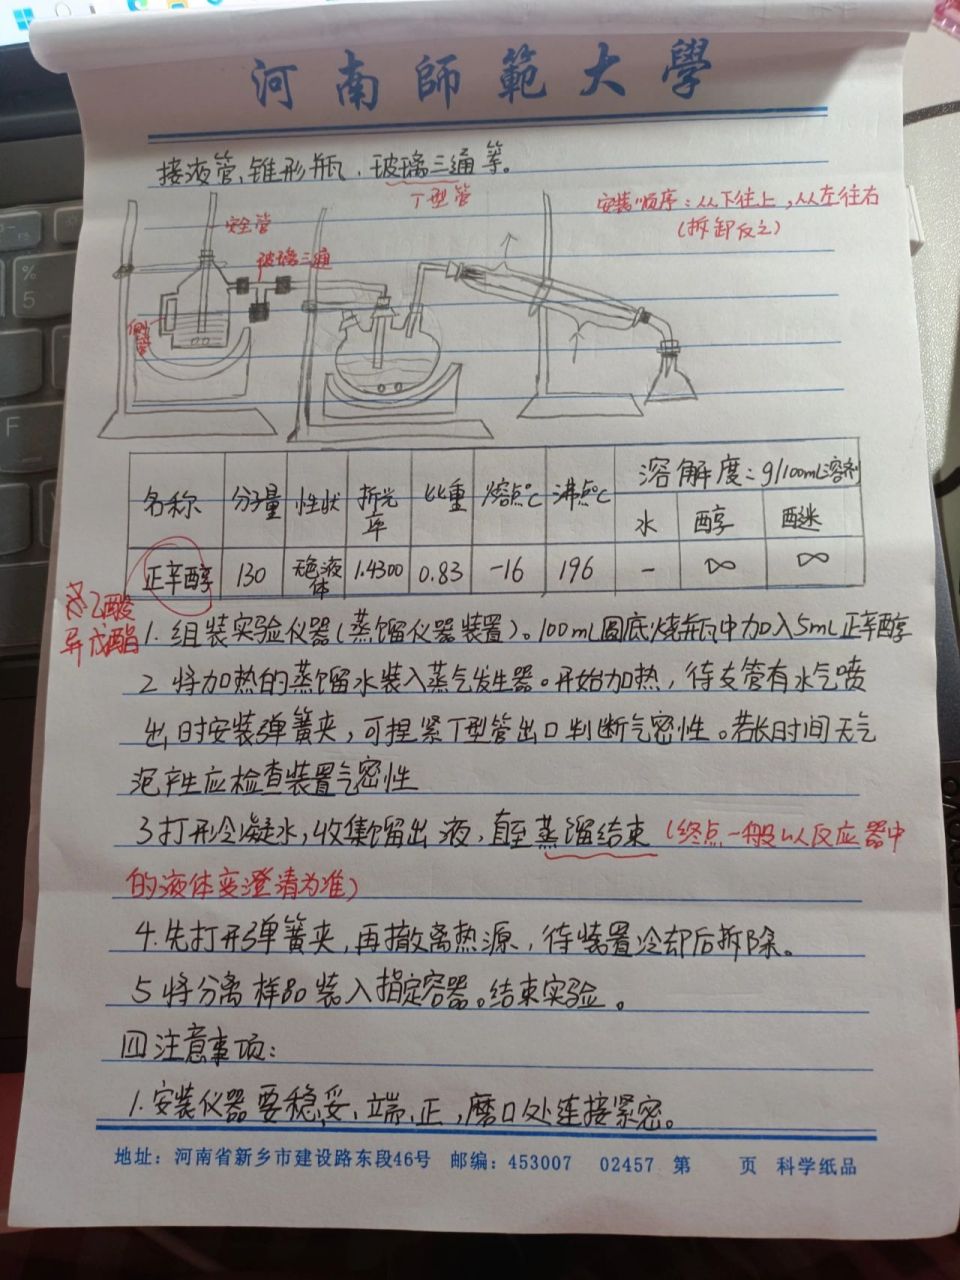 河南師範大學
接液管、锥形瓶、玻璃三通等。
T型管
安装顺序：从下往上，从左往右
（拆卸反之）
安全管
玻璃三通
侧管
名称 分子量 性状 折光率 比重 熔点℃ 沸点℃ 溶解度：g/100mL溶剂
水 醇 醚
正辛醇 130 无色液体 1.4300 0.83 -16 196 - ∞ ∞
乙酸
异戊酯
1. 组装实验仪器（蒸馏仪器装置）。100mL圆底烧瓶中加入5mL正辛醇
2 将加热的蒸馏水装入蒸气发生器。开始加热，待支管有水气喷
出时安装弹簧夹，可捏紧T型管出口判断气密性。若长时间无气
泡产生应检查装置气密性
3 打开冷凝水，收集馏出液，直至蒸馏结束（终点一般以反应器中
的液体变澄清为准）
4. 先打开弹簧夹，再撤离热源，待装置冷却后拆除。
5 将分离样品装入指定容器。结束实验。
四注意事项：
1. 安装仪器要稳、妥、端、正，磨口处连接紧密。
地址：河南省新乡市建设路东段46号 邮编：453007 02457 第 页 科学纸品